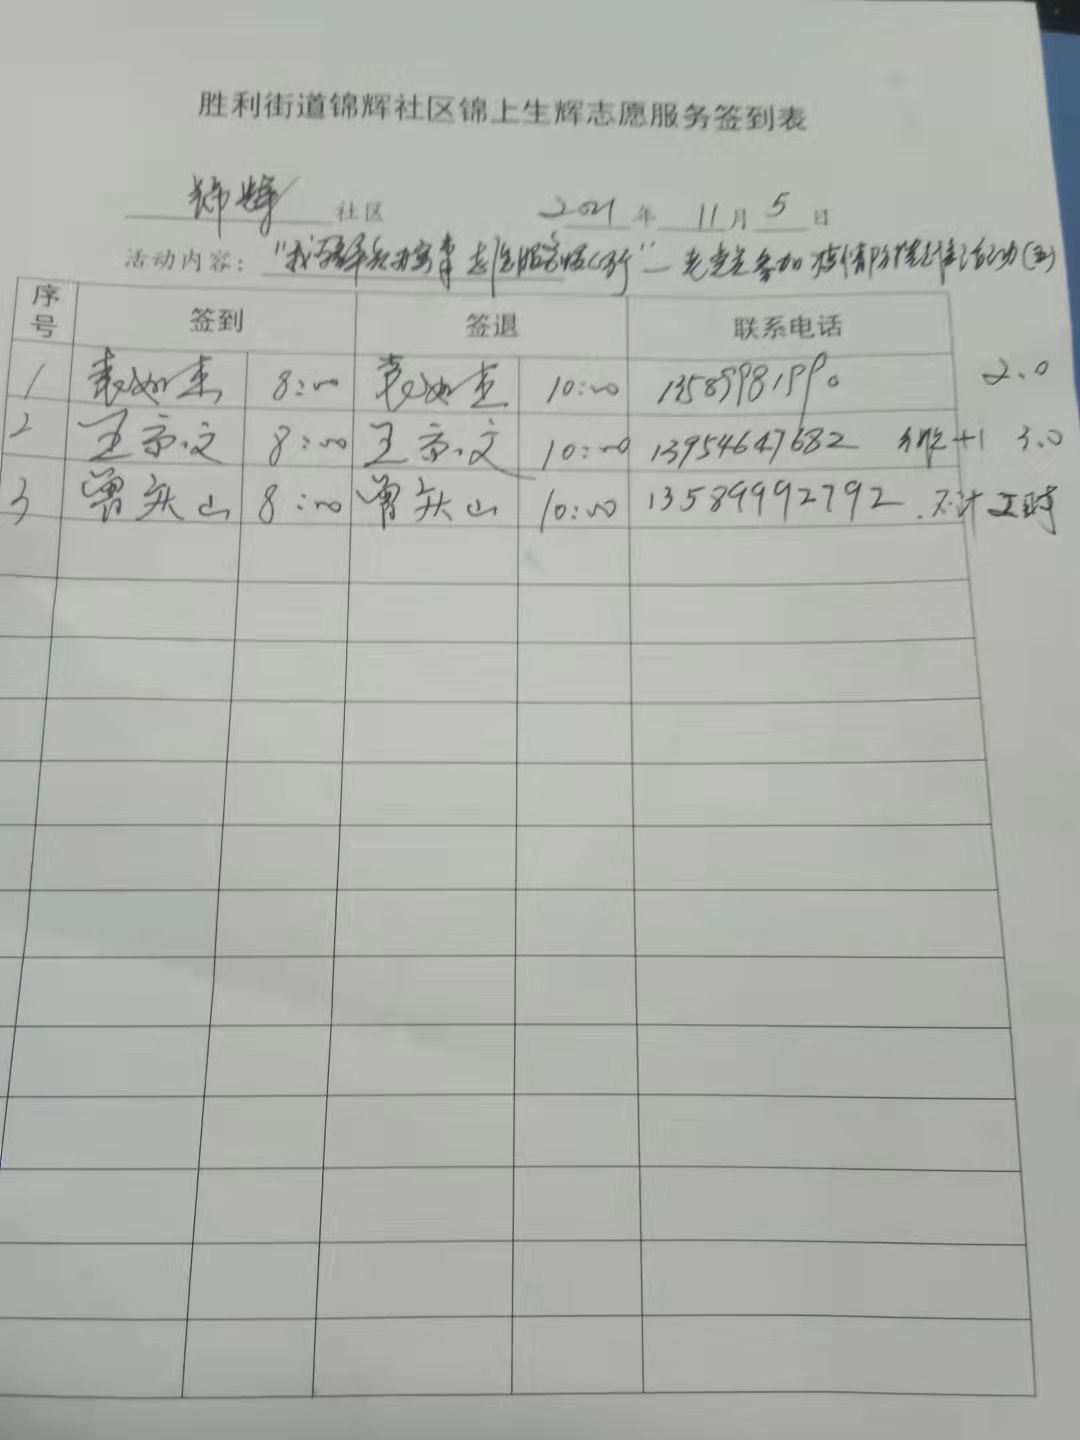 胜利街道锦辉社区锦上生辉志愿服务签到表
锦辉 社区 2021 年 11 月 5 日
活动内容: "我为群众办实事 志愿服务暖心行"—老党员参加疫情防控宣传活动(五)
序号 签到 签退 联系电话
1 袁如杰 8:00 袁如杰 10:00 13589981990 2.0
2 王京文 8:00 王京文 10:00 13954647682 +1 3.0
3 曾庆山 8:00 曾庆山 10:00 13589992792 不计工时